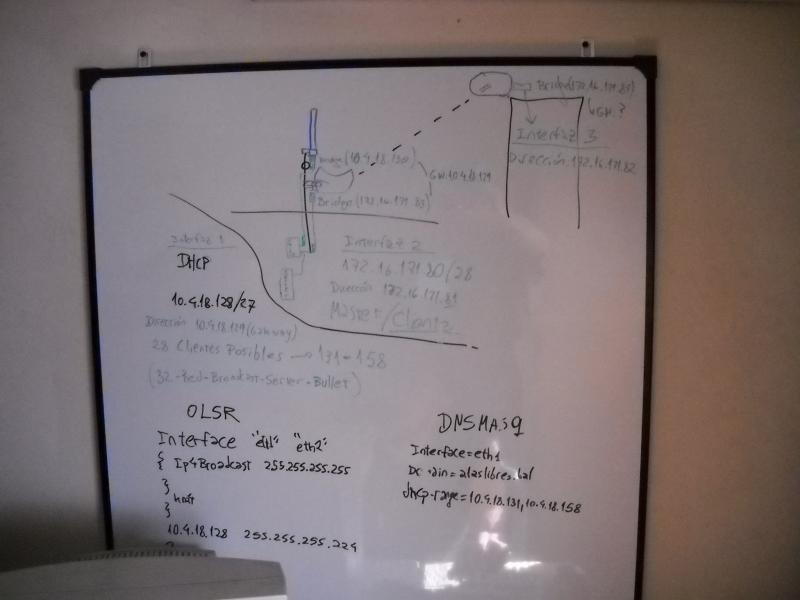 Bridge (172.16.171.83)
GW.?
Interfaz 3
Dirección 172.16.171.82
Bridge (10.4.18.130)
GW.10.4.18.129
Bridge (172.16.171.83)
Interfaz 1
DHCP
10.4.18.128/27
Dirección 10.4.18.129 (Gateway)
28 Clientes Posibles → 131-158
(32-Red-Broadcast-Server-Bullet)
Interfaz 2
172.16.171.80/28
Dirección 172.16.171.81
Master/Cliente
OLSR
Interface "eth1" "eth2"
{ Ip4Broadcast 255.255.255.255
}
{
10.4.18.128 255.255.255.224
DNSMASQ
Interface=eth1
dhcp-range=10.4.18.131,10.4.18.158